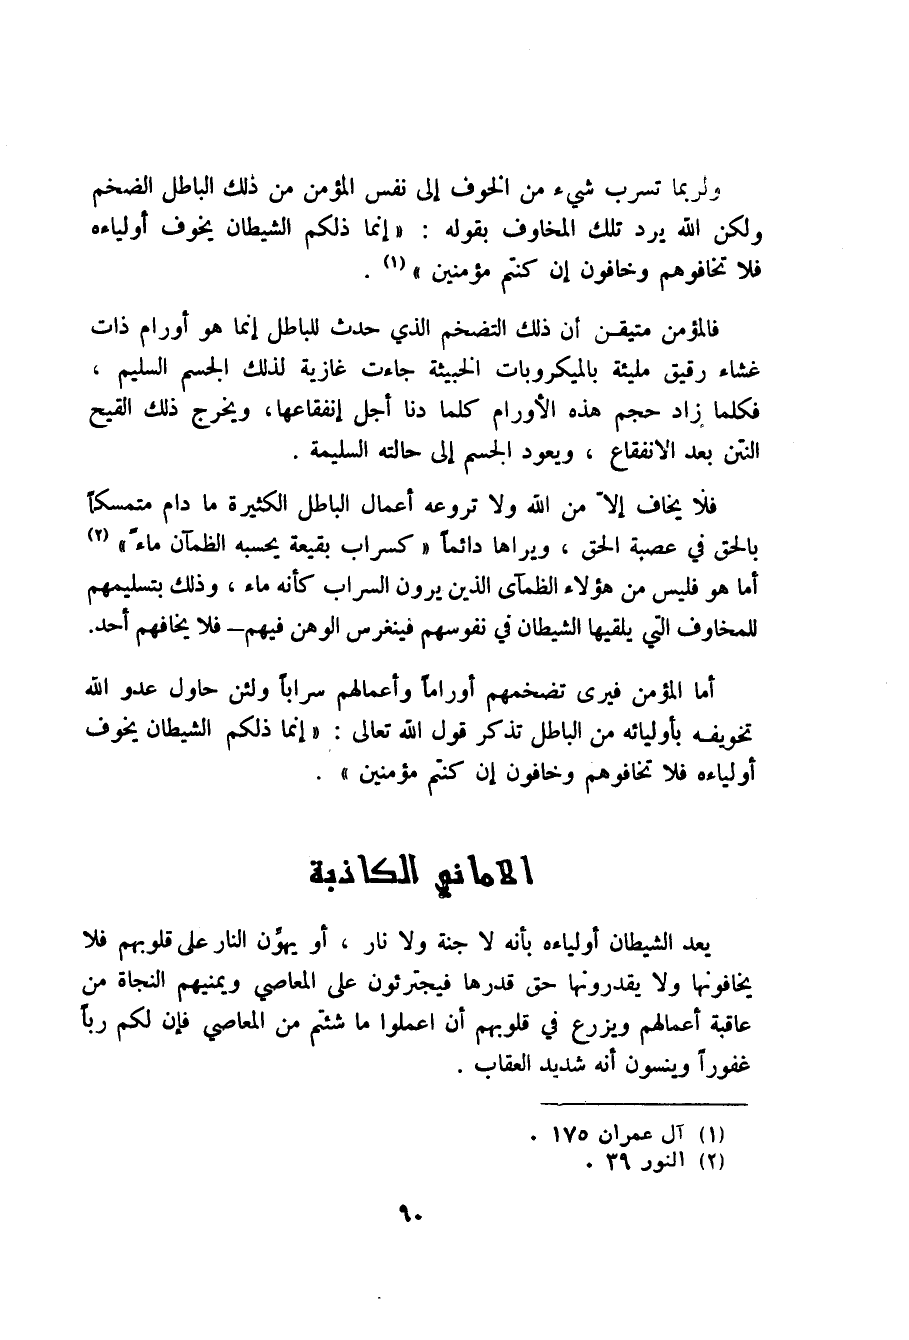 ولربما تسرب شيء من الخوف إلى نفس المؤمن من ذلك الباطل الضخم
ولكن الله يرد تلك المخاوف بقوله : « إنما ذلكم الشيطان يخوف أولياءه
فلا تخافوهم وخافون إن كنتم مؤمنين » (١) .
فالمؤمن متيقن أن ذلك التضخم الذي حدث للباطل إنما هو أورام ذات
غشاء رقيق مليئة بالميكروبات الخبيثة جاءت غازية لذلك الجسم السليم ،
فكلما زاد حجم هذه الأورام كلما دنا أجل إنفقاعها، ويخرج ذلك القيح
النتن بعد الانفقاع ، ويعود الجسم إلى حالته السليمة .
فلا يخاف إلاّ من الله ولا تروعه أعمال الباطل الكثيرة ما دام متمسكاً
بالحق في عصبة الحق ، ويراها دائماً « كسراب بقيعة يحسبه الظمآن ماءً » (٢)
أما هو فليس من هؤلاء الظمآى الذين يرون السراب كأنه ماء ، وذلك بتسليمهم
للمخاوف التي يلقيها الشيطان في نفوسهم فينغرس الوهن فيهم— فلا يخافهم أحد.
أما المؤمن فيرى تضخمهم أوراماً وأعمالهم سراباً ولئن حاول عدو الله
تخويفه بأوليائه من الباطل تذكر قول الله تعالى : « إنما ذلكم الشيطان يخوف
أولياءه فلا تخافوهم وخافون إن كنتم مؤمنين » .
الاماني الكاذبة
يعد الشيطان أولياءه بأنه لا جنة ولا نار ، أو يهوِّن النار على قلوبهم فلا
يخافونها ولا يقدرونها حق قدرها فيجترئون على المعاصي ويمنيهم النجاة من
عاقبة أعمالهم ويزرع في قلوبهم أن اعملوا ما شئتم من المعاصي فإن لكم رباً
غفوراً وينسون أنه شديد العقاب .
(١) آل عمران ١٧٥ .
(٢) النور ٣٩ .
٩٠